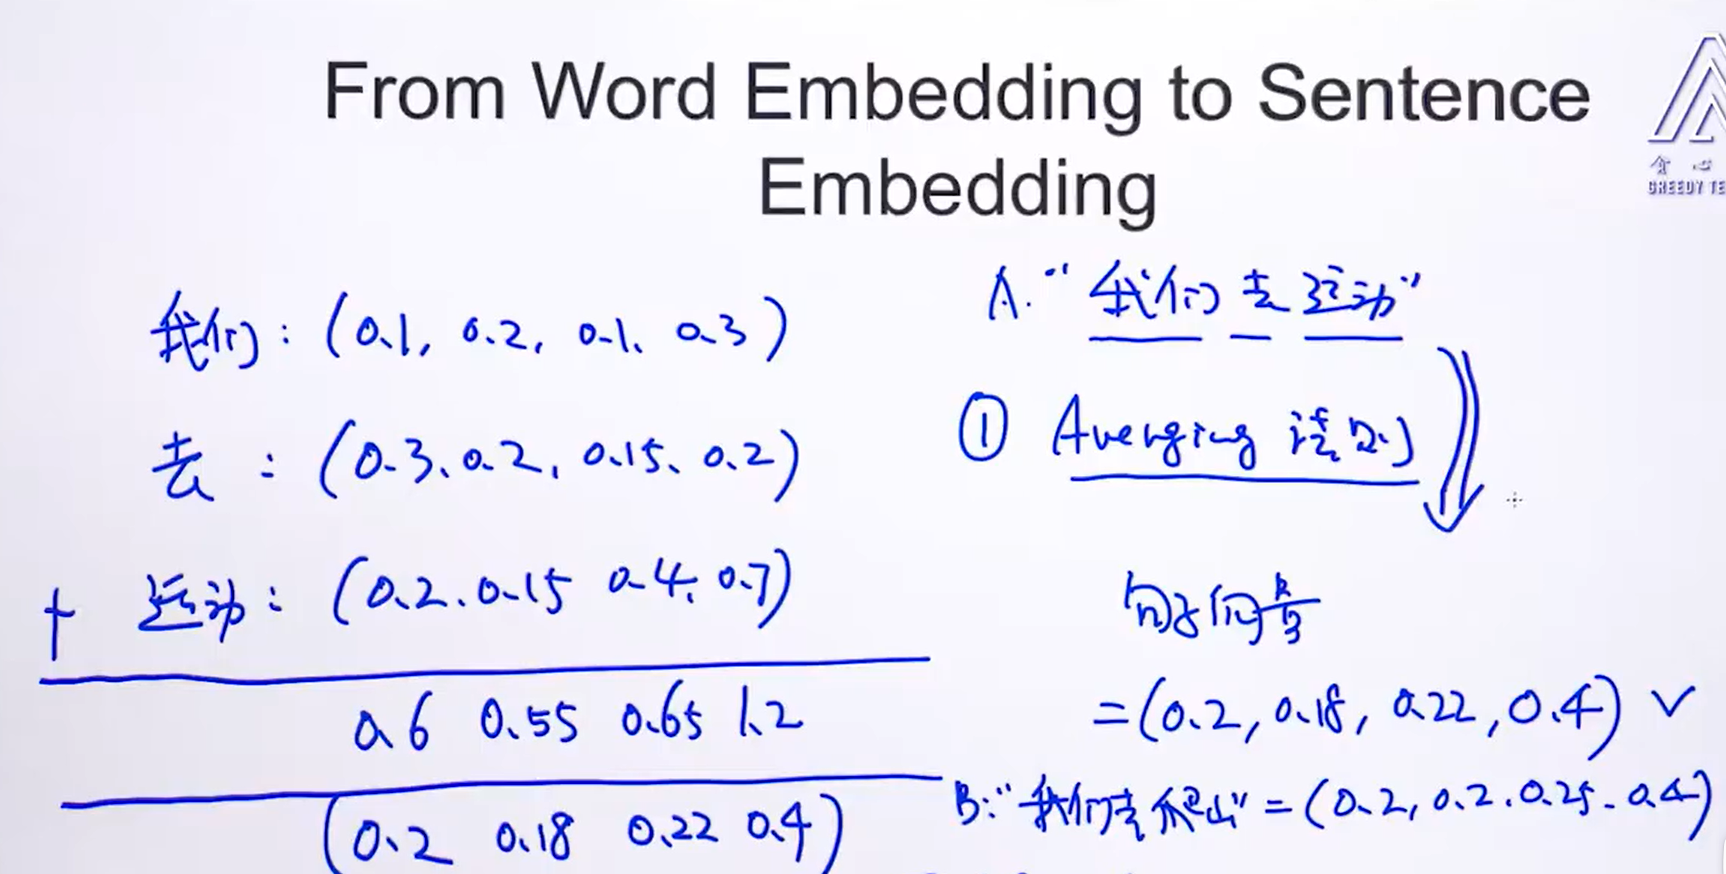 From Word Embedding to Sentence
Embedding
贪心
GREEDY TE
我们: (0.1, 0.2, 0.1, 0.3)
去 : (0.3, 0.2, 0.15, 0.2)
+ 运动: (0.2, 0.15 0.4, 0.7)
0.6 0.55 0.65 1.2
(0.2 0.18 0.22 0.4)
A. "我们去运动"
① Averaging 法则
句子向量
=(0.2, 0.18, 0.22, 0.4) ✓
B: "我们去爬山" = (0.2, 0.2, 0.25, 0.4)